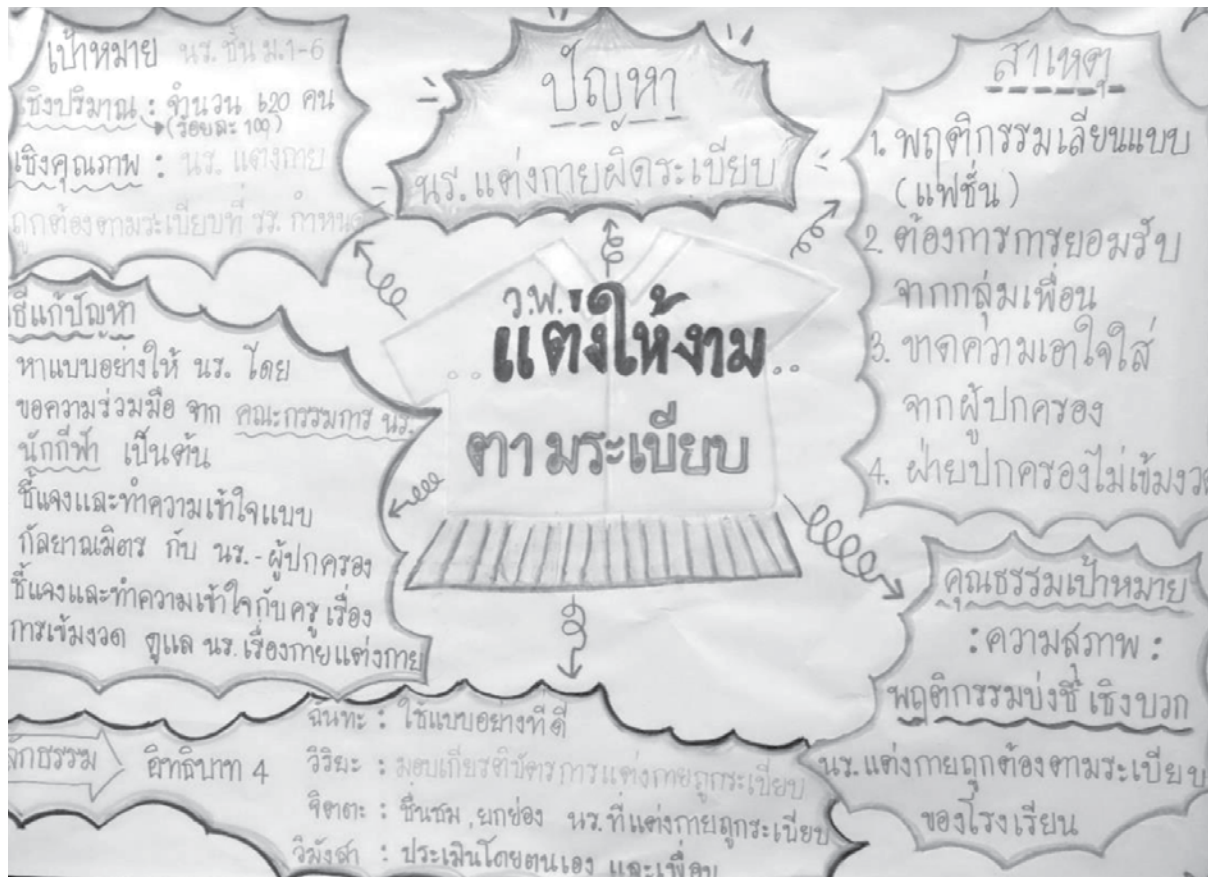 เป้าหมาย นร. ชั้น ม.1-6
เชิงปริมาณ : จำนวน 620 คน
(ร้อยละ 100)
เชิงคุณภาพ : นร. แต่งกาย
ถูกต้องตามระเบียบที่ รร. กำหนด
ปัญหา
นร. แต่งกายผิดระเบียบ
สาเหตุ
1. พฤติกรรมเลียนแบบ
(แฟชั่น)
2. ต้องการการยอมรับ
จากกลุ่มเพื่อน
3. ขาดความเอาใจใส่
จากผู้ปกครอง
4. ฝ่ายปกครองไม่เข้มงวด
ว.พ.
..แต่งให้งาม..
ตามระเบียบ
ธีแก้ปัญหา
หาแบบอย่างให้ นร. โดย
ขอความร่วมมือ จาก คณะกรรมการ นร.
นักกีฬา เป็นต้น
ชี้แจงและทำความเข้าใจแบบ
กัลยาณมิตร กับ นร.-ผู้ปกครอง
ชี้แจงและทำความเข้าใจกับครู เรื่อง
การเข้มงวด ดูแล นร. เรื่องกายแต่งกาย
คุณธรรมเป้าหมาย
: ความสุภาพ :
พฤติกรรมบ่งชี้ เชิงบวก
นร. แต่งกายถูกต้องตามระเบียบ
ของโรงเรียน
ลักธรรม อิทธิบาท 4
ฉันทะ : ใช้แบบอย่างที่ดี
วิริยะ : มอบเกียรติบัตรการแต่งกายถูกระเบียบ
จิตตะ : ชื่นชม, ยกย่อง นร. ที่แต่งกายถูกระเบียบ
วิมังสา : ประเมินโดยตนเอง และเพื่อน